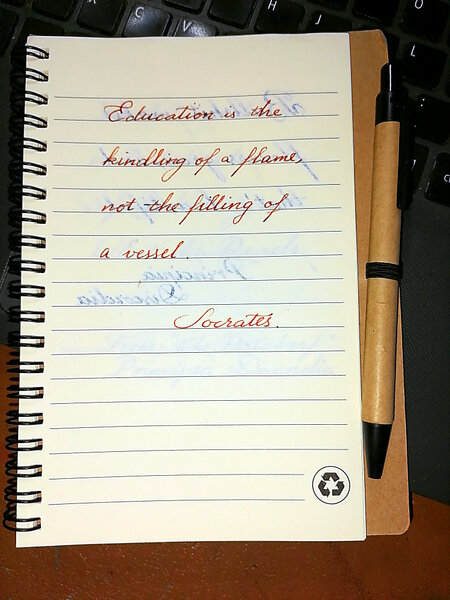 Education is the
kindling of a flame,
not the filling of
a vessel.
Principia
Discordia
Socrates.